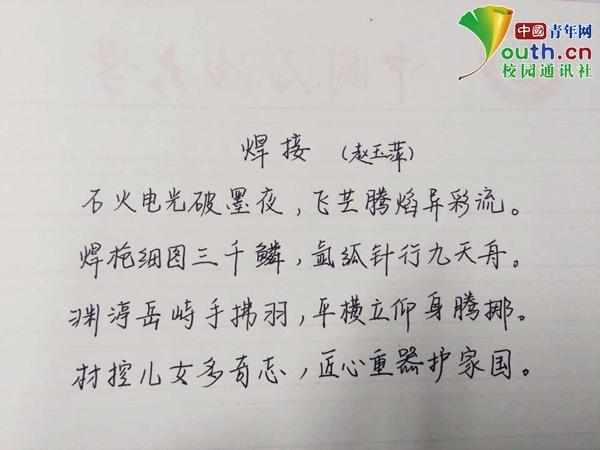 中國青年网
youth.cn
校园通讯社
中国石油大学
焊接 (赵玉萍)
石火电光破墨夜，飞芒腾焰异彩流。
焊枪细图三千鳞，氩弧针行九天舟。
渊渟岳峙手拂羽，平横立仰身腾挪。
材控儿女多奇志，匠心重器护家国。